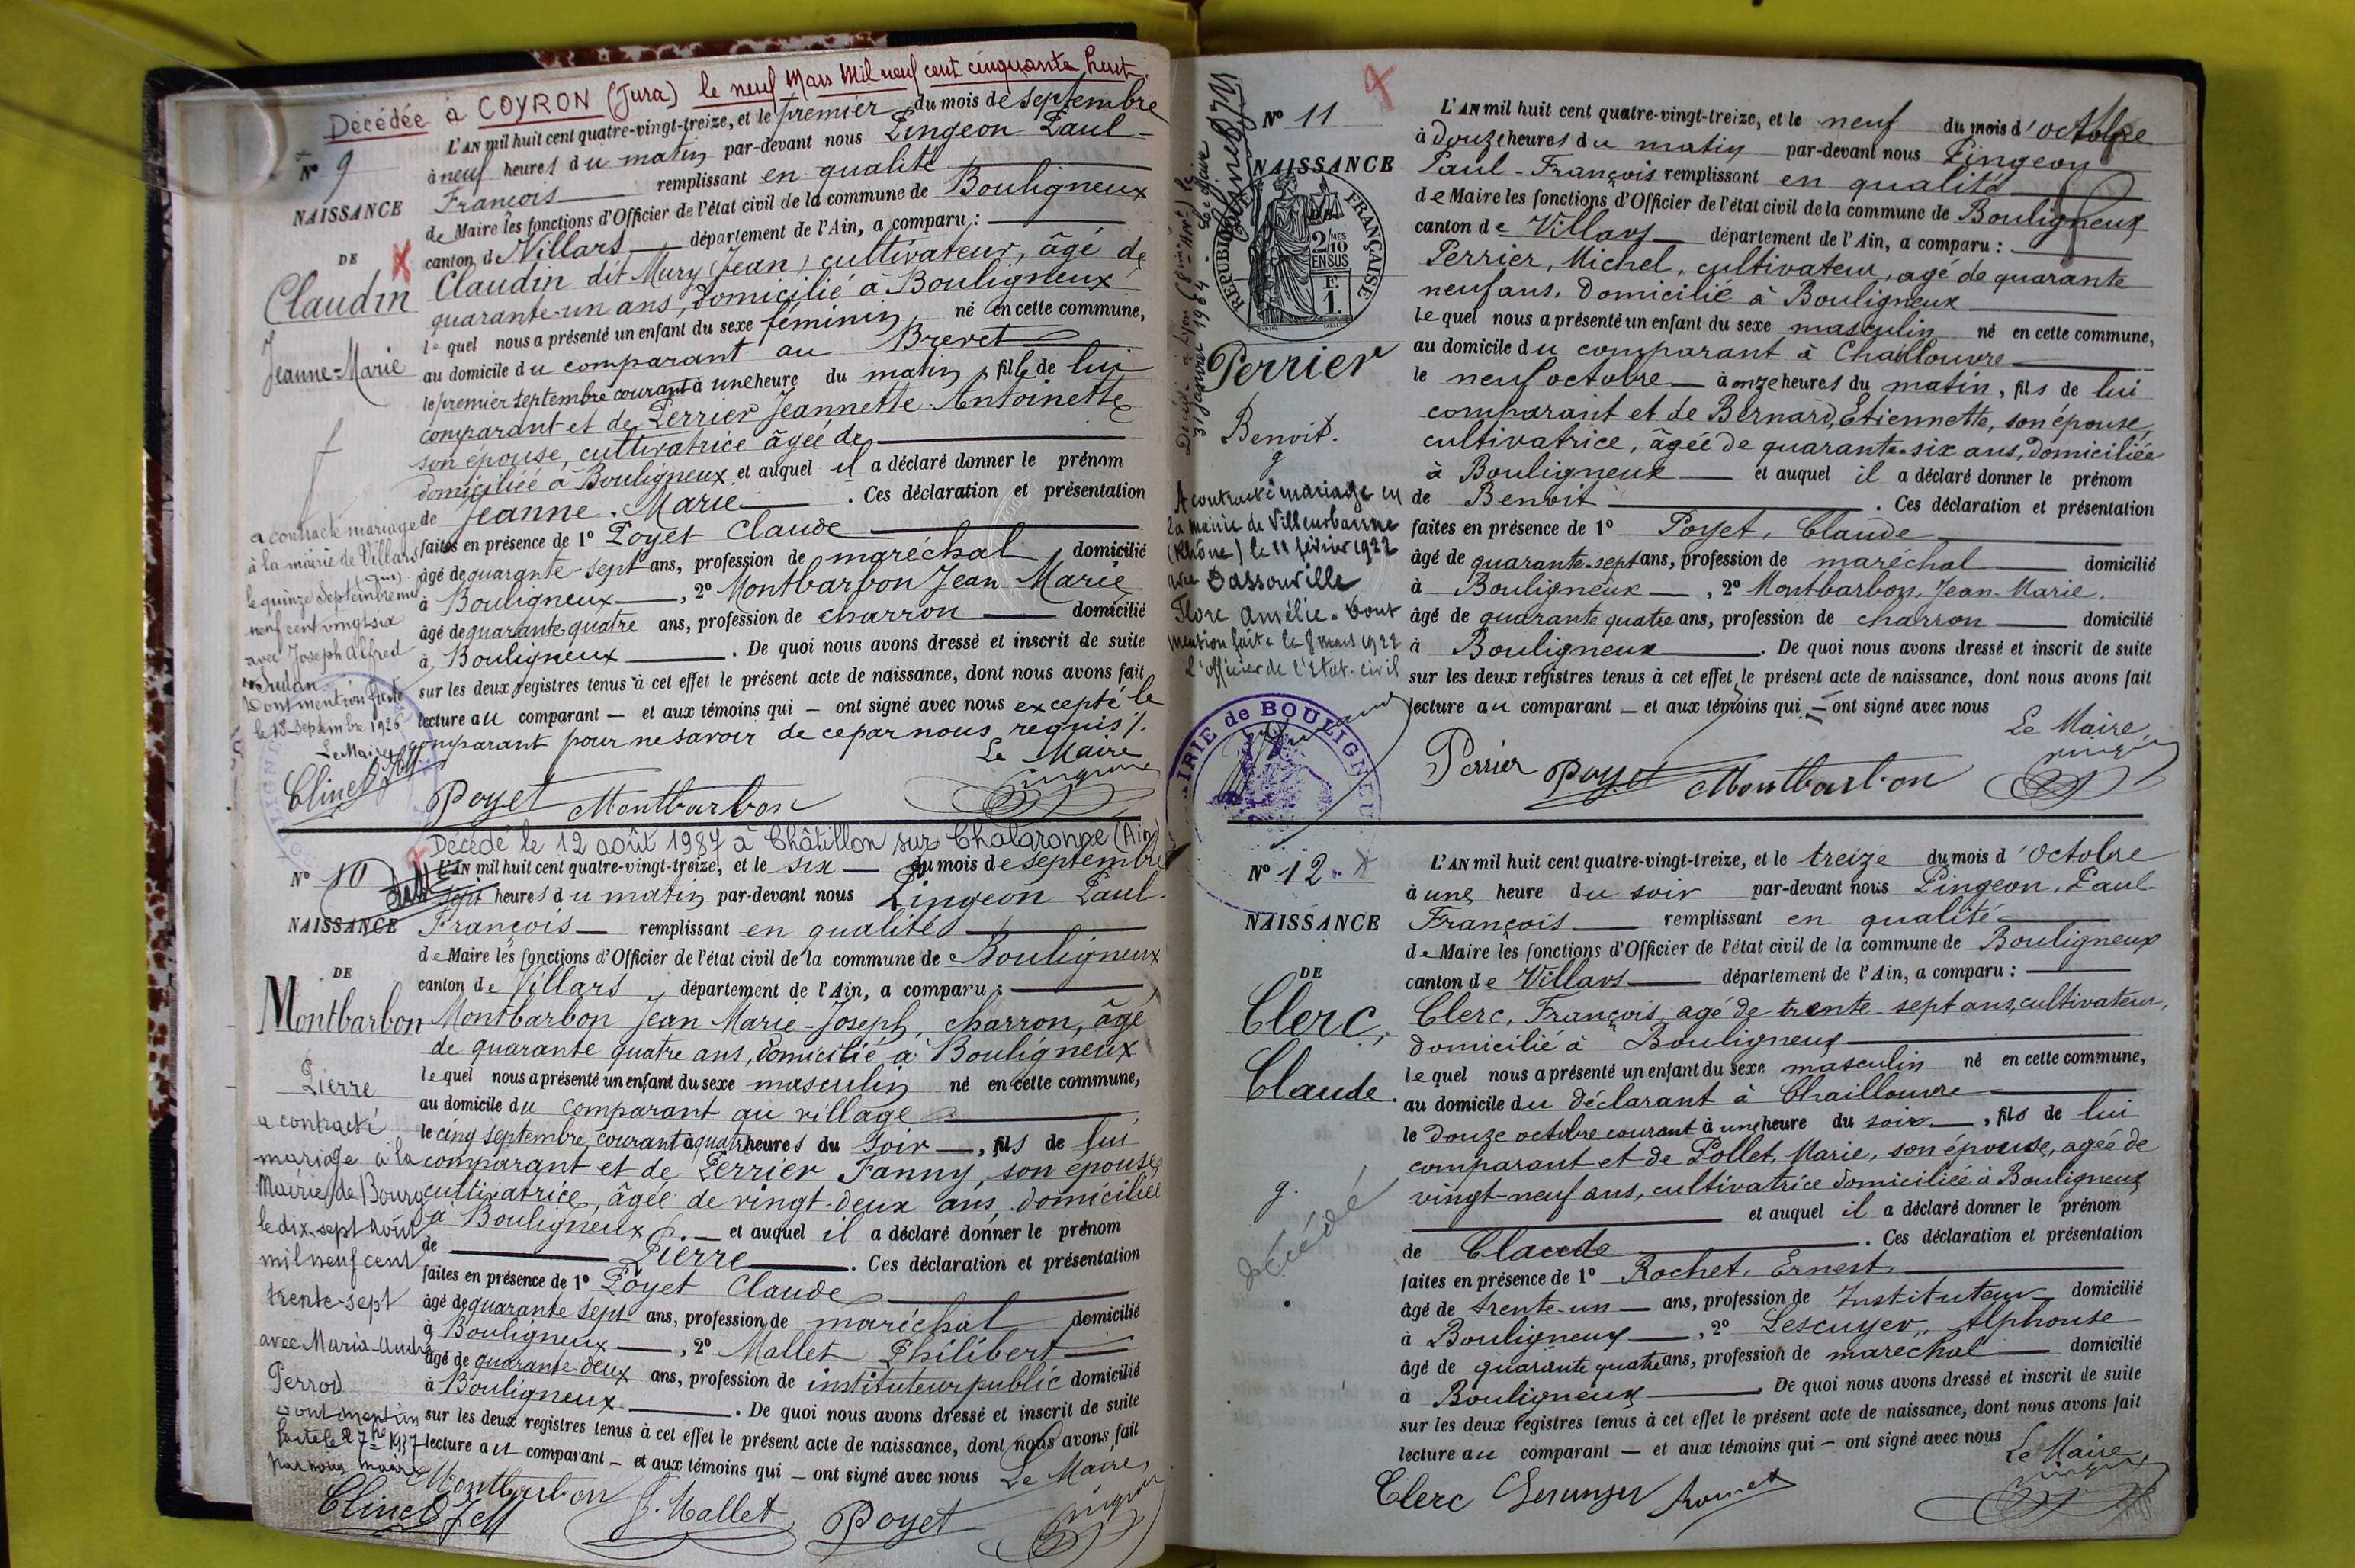 Décédée à COYRON (Jura) le neuf Mars Mil neuf cent cinquante huit.
N° 9
NAISSANCE
DE
Claudin
Jeanne-Marie
a contracté mariage
à la mairie de Villars
le quinze Septembre mil
neuf cent vingt six
avec Joseph Alfred
Judan
Dont mention faite
le 18 Septembre 1926
Le Maire
L'AN mil huit cent quatre-vingt-treize, et le premier du mois de septembre
à neuf heures du matin par-devant nous Pingeon Paul-
François remplissant en qualité
de Maire les fonctions d'Officier de l'état civil de la commune de Bouligneux
canton de Villars, département de l'Ain, a comparu :
Claudin dit Mury (Jean) cultivateur, âgé de
quarante-un ans, domicilié à Bouligneux
lequel nous a présenté un enfant du sexe féminin, né en cette commune,
au domicile du comparant au Brevet
le premier septembre courant à une heure du matin, fille de lui
comparant et de Perrier Jeannette-Antoinette
son épouse, cultivatrice âgée de
domiciliée à Bouligneux et auquel il a déclaré donner le prénom
de Jeanne-Marie. Ces déclaration et présentation
faites en présence de 1° Poyet Claude
âgé de quarante-sept ans, profession de maréchal, domicilié
à Bouligneux, 2° Montbarbon Jean Marie
âgé de quarante quatre ans, profession de charron domicilié
à Bouligneux. De quoi nous avons dressé et inscrit de suite
sur les deux registres tenus à cet effet le présent acte de naissance, dont nous avons fait
lecture au comparant — et aux témoins qui — ont signé avec nous excepté le
comparant pour ne savoir de ce par nous requis
Le Maire
Poyet Montbarbon
Décédé le 12 août 1987 à Châtillon sur Chalaronne (Ain)
N° 10
NAISSANCE
DE
Montbarbon
Pierre
a contracté
mariage à la
Mairie de Bourg
le dix-sept août
mil neuf cent
trente-sept
avec Maria
Perrod
dont mention
par nous maire
L'AN mil huit cent quatre-vingt-treize, et le six du mois de septembre
sept heures du matin par-devant nous Pingeon Paul-
François — remplissant en qualité
de Maire les fonctions d'Officier de l'état civil de la commune de Bouligneux
canton de Villars, département de l'Ain, a comparu :
Montbarbon Jean Marie-Joseph, charron, âgé
de quarante quatre ans, domicilié à Bouligneux
lequel nous a présenté un enfant du sexe masculin né en cette commune,
au domicile du comparant au village
le cinq septembre courant à quatre heures du soir —, fils de lui
comparant et de Perrier Fanny, son épouse,
cultivatrice, âgée de vingt-deux ans, domiciliée
à Bouligneux. — et auquel il a déclaré donner le prénom
de Pierre. Ces déclaration et présentation
faites en présence de 1° Poyet Claude
âgé de quarante sept ans, profession de maréchal domicilié
à Bouligneux, 2° Mallet Philibert
âgé de quarante-deux ans, profession de instituteur public domicilié
à Bouligneux. De quoi nous avons dressé et inscrit de suite
sur les deux registres tenus à cet effet le présent acte de naissance, dont nous avons fait
lecture au comparant — et aux témoins qui — ont signé avec nous Le Maire,
Montbarbon Mallet Poyet
N° 11
NAISSANCE
RÉPUBLIQUE FRANÇAISE
2/10 MES
EN SUS
Fr.
1.
Perrier
Benoit.
31 janvier 1984
A contracté mariage en
la mairie de Villeurbanne
(Rhône) le 11 février 1922
avec Dassonville
Flore Amélie. Dont
mention faite le 8 mars 1922
L'officier de l'Etat-civil
MAIRIE de BOULIGNEUX
L'AN mil huit cent quatre-vingt-treize, et le neuf du mois d'octobre
à douze heures du matin par-devant nous Pingeon
Paul-François remplissant en qualité
de Maire les fonctions d'Officier de l'état civil de la commune de Bouligneux
canton de Villars département de l'Ain, a comparu :
Perrier, Michel, cultivateur, agé de quarante
neuf ans, domicilié à Bouligneux
lequel nous a présenté un enfant du sexe masculin né en cette commune,
au domicile du comparant à Chaillouvre
le neuf octobre — à onze heures du matin, fils de lui
comparant et de Bernard, Etiennette, son épouse,
cultivatrice, âgée de quarante-six ans, domiciliée
à Bouligneux — et auquel il a déclaré donner le prénom
de Benoit. Ces déclaration et présentation
faites en présence de 1° Poyet, Claude
âgé de quarante-sept ans, profession de maréchal domicilié
à Bouligneux —, 2° Montbarbon, Jean-Marie,
âgé de quarante quatre ans, profession de charron domicilié
à Bouligneux. De quoi nous avons dressé et inscrit de suite
sur les deux registres tenus à cet effet le présent acte de naissance, dont nous avons fait
lecture au comparant — et aux témoins qui — ont signé avec nous
Le Maire,
Perrier Poyet Montbarbon
N° 12
NAISSANCE
DE
Clerc,
Claude.
décédé
L'AN mil huit cent quatre-vingt-treize, et le treize du mois d'octobre
à une heure du soir par-devant nous Pingeon, Paul-
François remplissant en qualité
de Maire les fonctions d'Officier de l'état civil de la commune de Bouligneux
canton de Villars département de l'Ain, a comparu :
Clerc, François, agé de trente-sept ans, cultivateur,
domicilié à Bouligneux
lequel nous a présenté un enfant du sexe masculin né en cette commune,
au domicile du déclarant à Chaillouvre
le douze octobre courant à une heure du soir —, fils de lui
comparant et de Pollet, Marie, son épouse, agée de
vingt-neuf ans, cultivatrice domiciliée à Bouligneux
et auquel il a déclaré donner le prénom
de Claude. Ces déclaration et présentation
faites en présence de 1° Rochet, Ernest,
âgé de trente-un — ans, profession de Instituteur domicilié
à Bouligneux —, 2° Lescuyer, Alphonse
âgé de quarante quatre ans, profession de maréchal domicilié
à Bouligneux. De quoi nous avons dressé et inscrit de suite
sur les deux registres tenus à cet effet le présent acte de naissance, dont nous avons fait
lecture au comparant — et aux témoins qui — ont signé avec nous
Le Maire,
Clerc